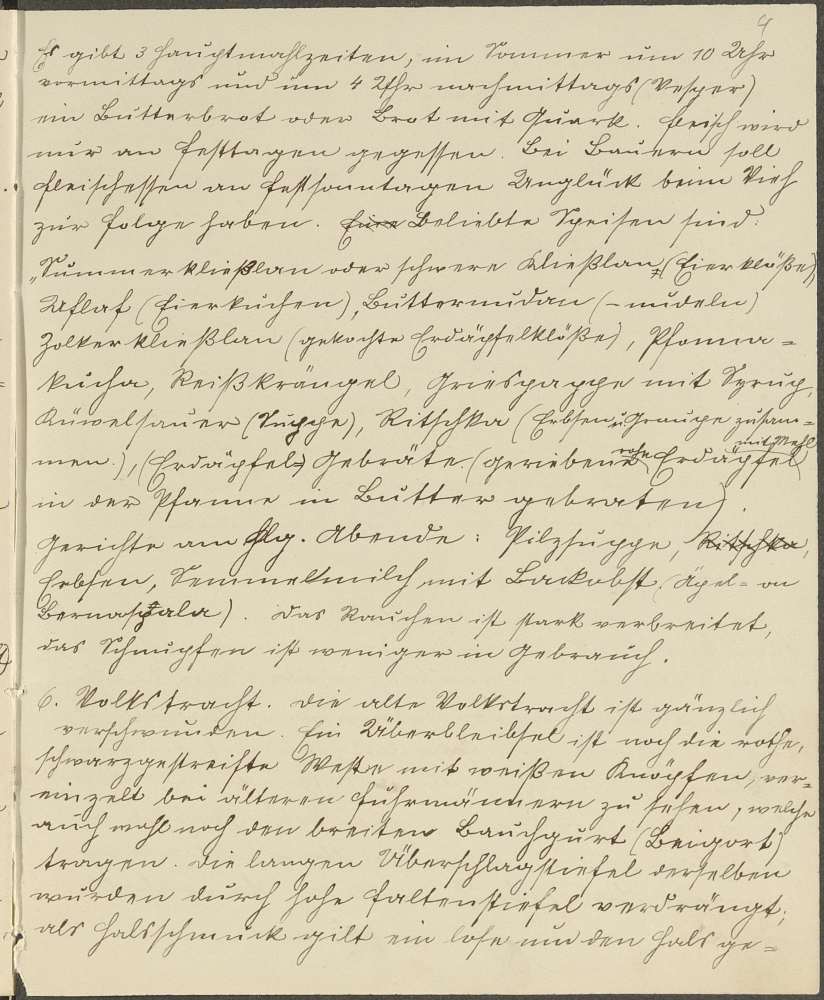 4
Es gibt 3 Hauptmahlzeiten, im Sommer um 10 Uhr
vormittags und um 4 Uhr nachmittags (Vesper)
ein Butterbrot oder Brot mit Quark. Fleisch wird
nur an Festtagen gegessen. Bei Bauern soll
Fleischessen an Festsonntagen Unglück beim Vieh
zur Folge haben. Beliebte Speisen sind:
„Summerkließlan oder schwere Kließlan (Eierklöße)
Uflaf (Eierkuchen), Butternudan (-nudeln)
Zolkerkließlan (gekochte Erdäpfelklöße), Pfonna-
kucha, Reißkrängel, Griespappe mit Syrup,
Küwelsauer (Suppe), Ritschka (Erbsen u. Graupe zusam-
men.), (Erdäpfel-) Gebräte (geriebene rohe Erdäpfel mit Mehl
in der Pfanne in Butter gebraten).
Gerichte am hlg. Abende: Pilzsuppe, Ritschka,
Erbsen, Semmelmilch mit Backobst (Äpel- on
). Das Rauchen ist stark verbreitet,
das Schnupfen ist weniger in Gebrauch.
6. Volkstracht. Die alte Volkstracht ist gänzlich
verschwunden. Ein Überbleibsel ist noch die rothe,
schwarzgestreifte Weste mit weißen Knöpfen, ver-
einzelt bei älteren Fuhrmännern zu sehen, welche
auch wohl noch den breiten Bauchgurt (Beigort)
tragen. Die langen Überschlagstiefel derselben
wurden durch hohe Faltenstiefel verdrängt;
als Halsschmuck gilt ein lose um den Hals ge-